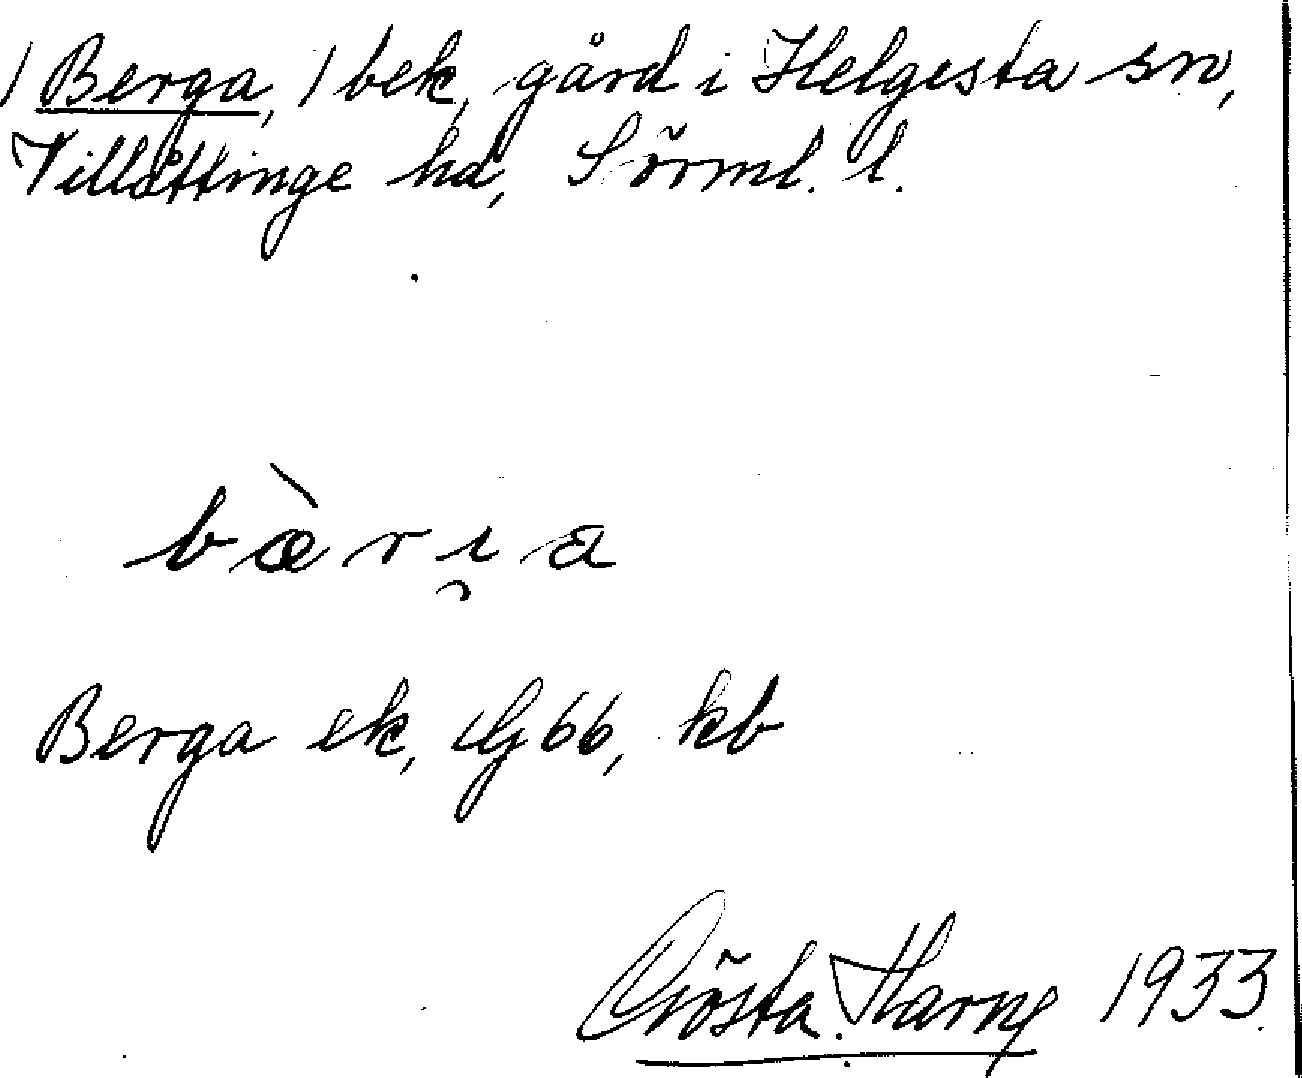 / Berga, / bek, gård i Helgesta sn,
Villåttinge hd, Sörml. l.
bæ̀rı̯a
Berga ek, G 66, kb
Gösta 1933